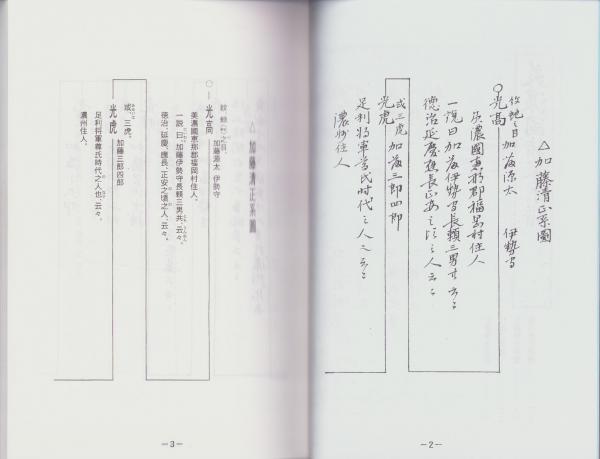 △加藤清正系圖
紋蛇ノ目 加藤源太 伊勢守
○光高
美濃國恵那郡福岡村住人
一説曰加藤伊勢守長頼三男共云々
徳治延慶應長正安之頃之人云々
或三虎 加藤三郎四郎
光虎
足利将軍尊氏時代之人也云々
濃州住人
—2—
△加藤清正系圖
紋 蛇ノ目。 加藤源太 伊勢守
○—光高
美濃國恵那郡福岡村住人。
一説曰、加藤伊勢守長頼三男共云々。
徳治、延慶、應長、正安之頃之人云々。
或、三虎。 加藤三郎四郎
光虎
足利将軍尊氏時代之人也云々。
濃州住人。
—3—